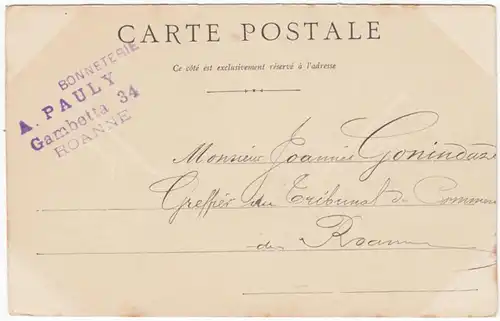 CARTE POSTALE
Ce côté est exclusivement réservé à l'adresse
BONNETERIE
A. PAULY
Gambetta 34
ROANNE
Monsieur Joannès
Greffier du Tribunal de
de Roanne